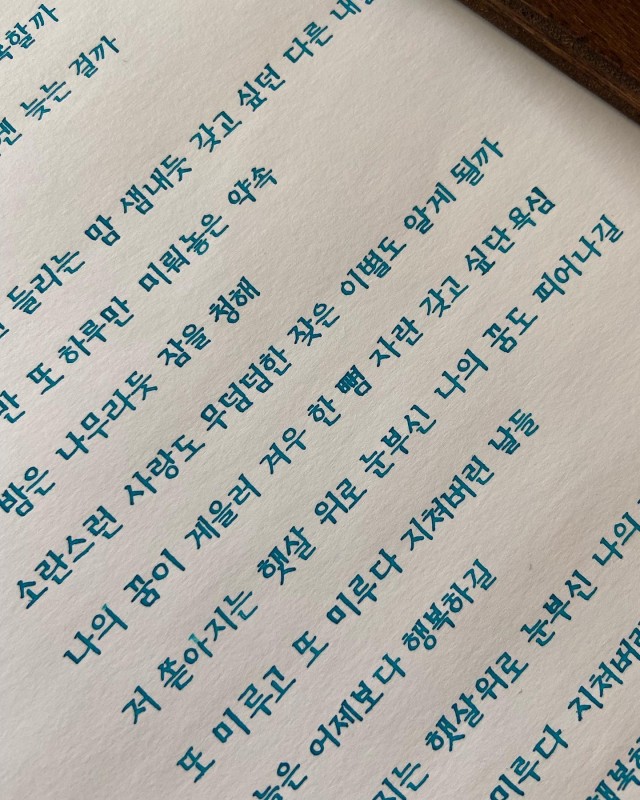 늦는 걸까
들리는 맘 샘내듯 갖고 싶던 다른
또 하루만 미뤄놓은 약속
밤은 나무라듯 잠을 청해
소란스런 사랑도 무덤덤한 잦은 이별도 알게 될까
나의 꿈이 게을러 겨우 한 뼘 자란 갖고 싶단 욕심
저 쫃아지는 햇살 위로 눈부신 나의 꿈도 피어나길
또 미루고 또 미루다 지쳐버린 날들
어제보다 행복하길
햇살위로 눈부신 나의
미루다